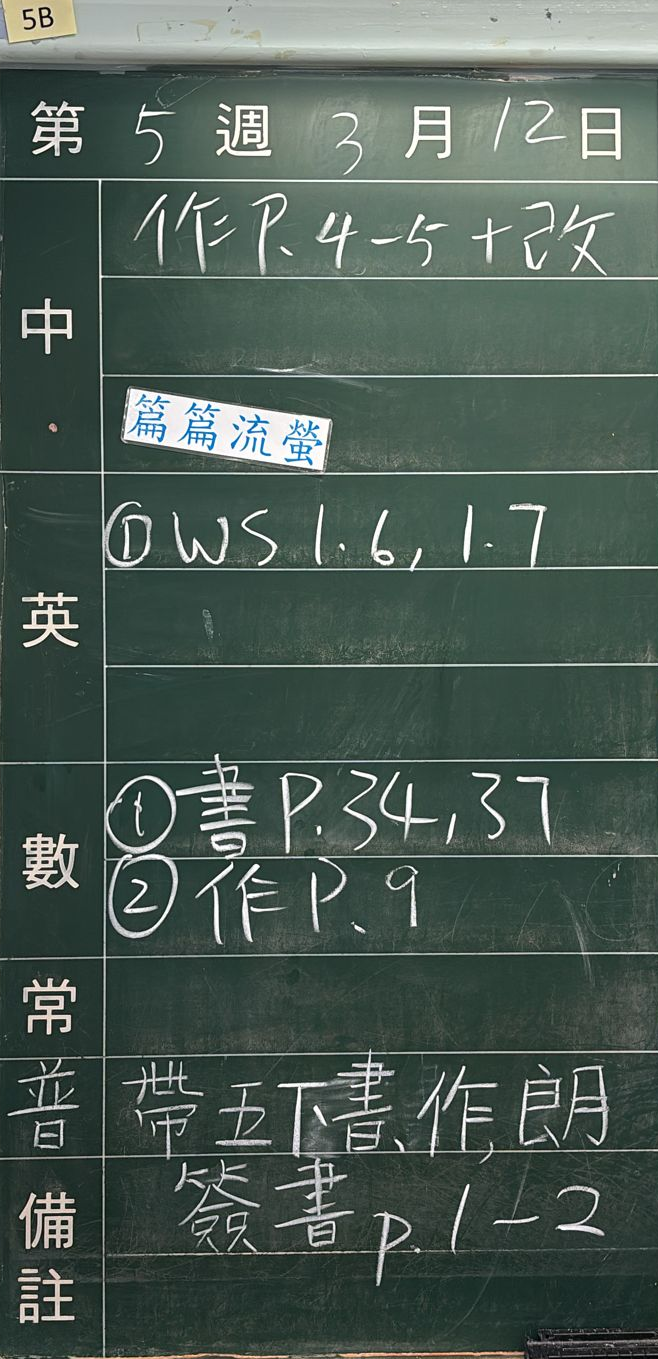 5B
第 5 週 3 月 12 日
中
作 P. 4-5 + 改
篇篇流螢
英
① WS 1.6, 1.7
數
① 書 P. 34, 37
② 作 P. 9
常
普
帶五下書、作、朗
備註
簽書 p. 1-2